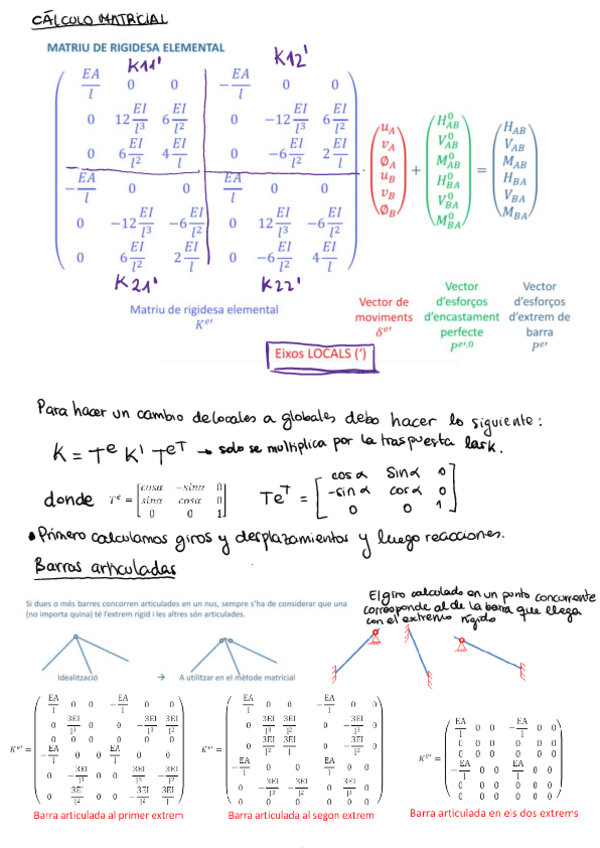 CÁLCULO MATRICIAL
MATRIU DE RIGIDESA ELEMENTAL
K11' K12'
EA/l 0 0 -EA/l 0 0
0 12 EI/l³ 6 EI/l² 0 -12 EI/l³ 6 EI/l²
0 6 EI/l² 4 EI/l 0 -6 EI/l² 2 EI/l
-EA/l 0 0 EA/l 0 0
0 -12 EI/l³ -6 EI/l² 0 12 EI/l³ -6 EI/l²
0 6 EI/l² 2 EI/l 0 -6 EI/l² 4 EI/l
K21' K22'
· (u_A v_A Ø_A u_B v_B Ø_B) + (H⁰_AB V⁰_AB M⁰_AB H⁰_BA V⁰_BA M⁰_BA) = (H_AB V_AB M_AB H_BA V_BA M_BA)
Matriu de rigidesa elemental
K^e'
Vector de
moviments
δ^e'
Vector
d'esforços
d'encastament
perfecte
P^e',0
Vector
d'esforços
d'extrem de
barra
P^e'
Eixos LOCALS (')
Para hacer un cambio de locales a globales debo hacer lo siguiente:
K = T^e K' T^eT → solo se multiplica por la traspuesta las k.
donde T^e = [cosα -sinα 0
sinα cosα 0
0 0 1]
Te^T = [cos α Sin α 0
-sin α cos α 0
0 0 1]
• Primero calculamos giros y desplazamientos y luego reacciones.
Barras articuladas
Si dues o més barres concorren articulades en un nus, sempre s'ha de considerar que una
(no importa quina) té l'extrem rígid i les altres són articulades.
El giro calculado en un punto concurrente
corresponde al de la barra que llega
con el extremo rígido
Idealització → A utilitzar en el mètode matricial
K^e' =
EA/l 0 0 -EA/l 0 0
0 3EI/l³ 0 0 -3EI/l³ 3EI/l²
0 0 0 0 0 0
-EA/l 0 0 EA/l 0 0
0 -3EI/l³ 0 0 3EI/l³ -3EI/l²
0 3EI/l² 0 0 -3EI/l² 3EI/l
Barra articulada al primer extrem
K^e' =
EA/l 0 0 -EA/l 0 0
0 3EI/l³ 3EI/l² 0 -3EI/l³ 0
0 3EI/l² 3EI/l 0 -3EI/l² 0
-EA/l 0 0 EA/l 0 0
0 -3EI/l³ -3EI/l² 0 3EI/l³ 0
0 0 0 0 0 0
Barra articulada al segon extrem
K^e' =
EA/l 0 0 -EA/l 0 0
0 0 0 0 0 0
0 0 0 0 0 0
-EA/l 0 0 EA/l 0 0
0 0 0 0 0 0
0 0 0 0 0 0
Barra articulada en els dos extrems